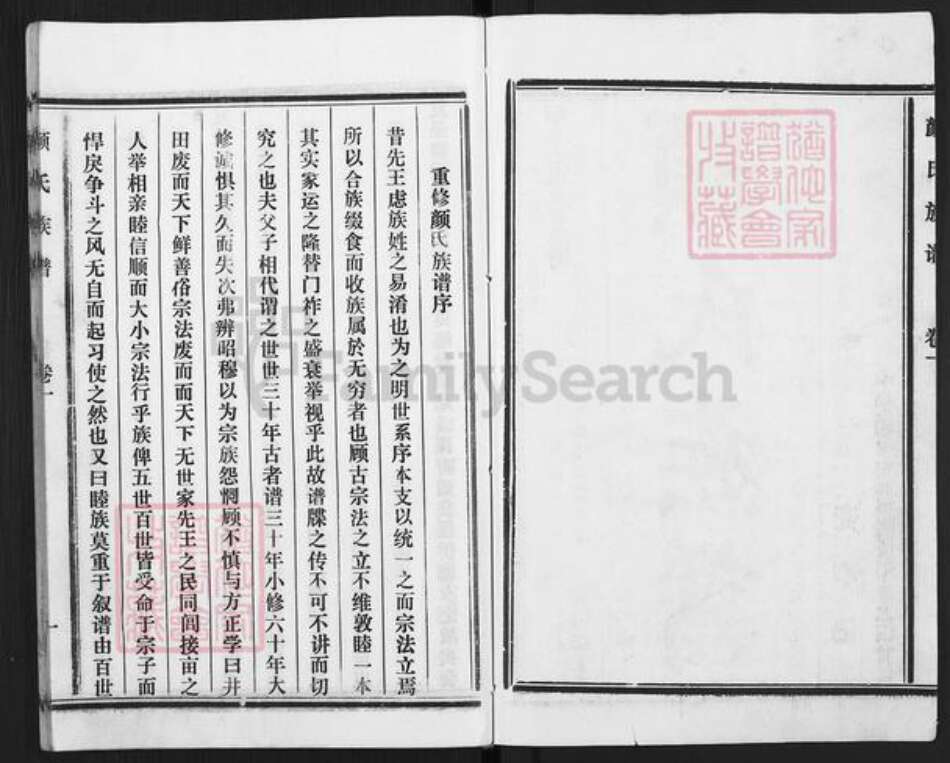 颜氏族谱 卷一
猶他家
譜學會
收藏
重修颜氏族谱序
昔先王虑族姓之易淆也为之明世系序本支以统一之而宗法立焉
所以合族缀食而收族属於无穷者也顾古宗法之立不维敦睦一本
其实家运之隆替门祚之盛衰举视乎此故谱牒之传不可不讲而切
究之也夫父子相代谓之世世三十年古者谱三十年小修六十年大
修谕惧其久而失次弗辨昭穆以为宗族怨恫顾不慎与方正学曰井
田废而天下鲜善俗宗法废而而天下无世家先王之民同闾接亩之
人举相亲睦信顺而大小宗法行乎族俾五世百世皆受命于宗子而
悍戾争斗之风无自而起习使之然也又曰睦族莫重于叙谱由百世
颜氏族谱 卷一 一
FamilySearch